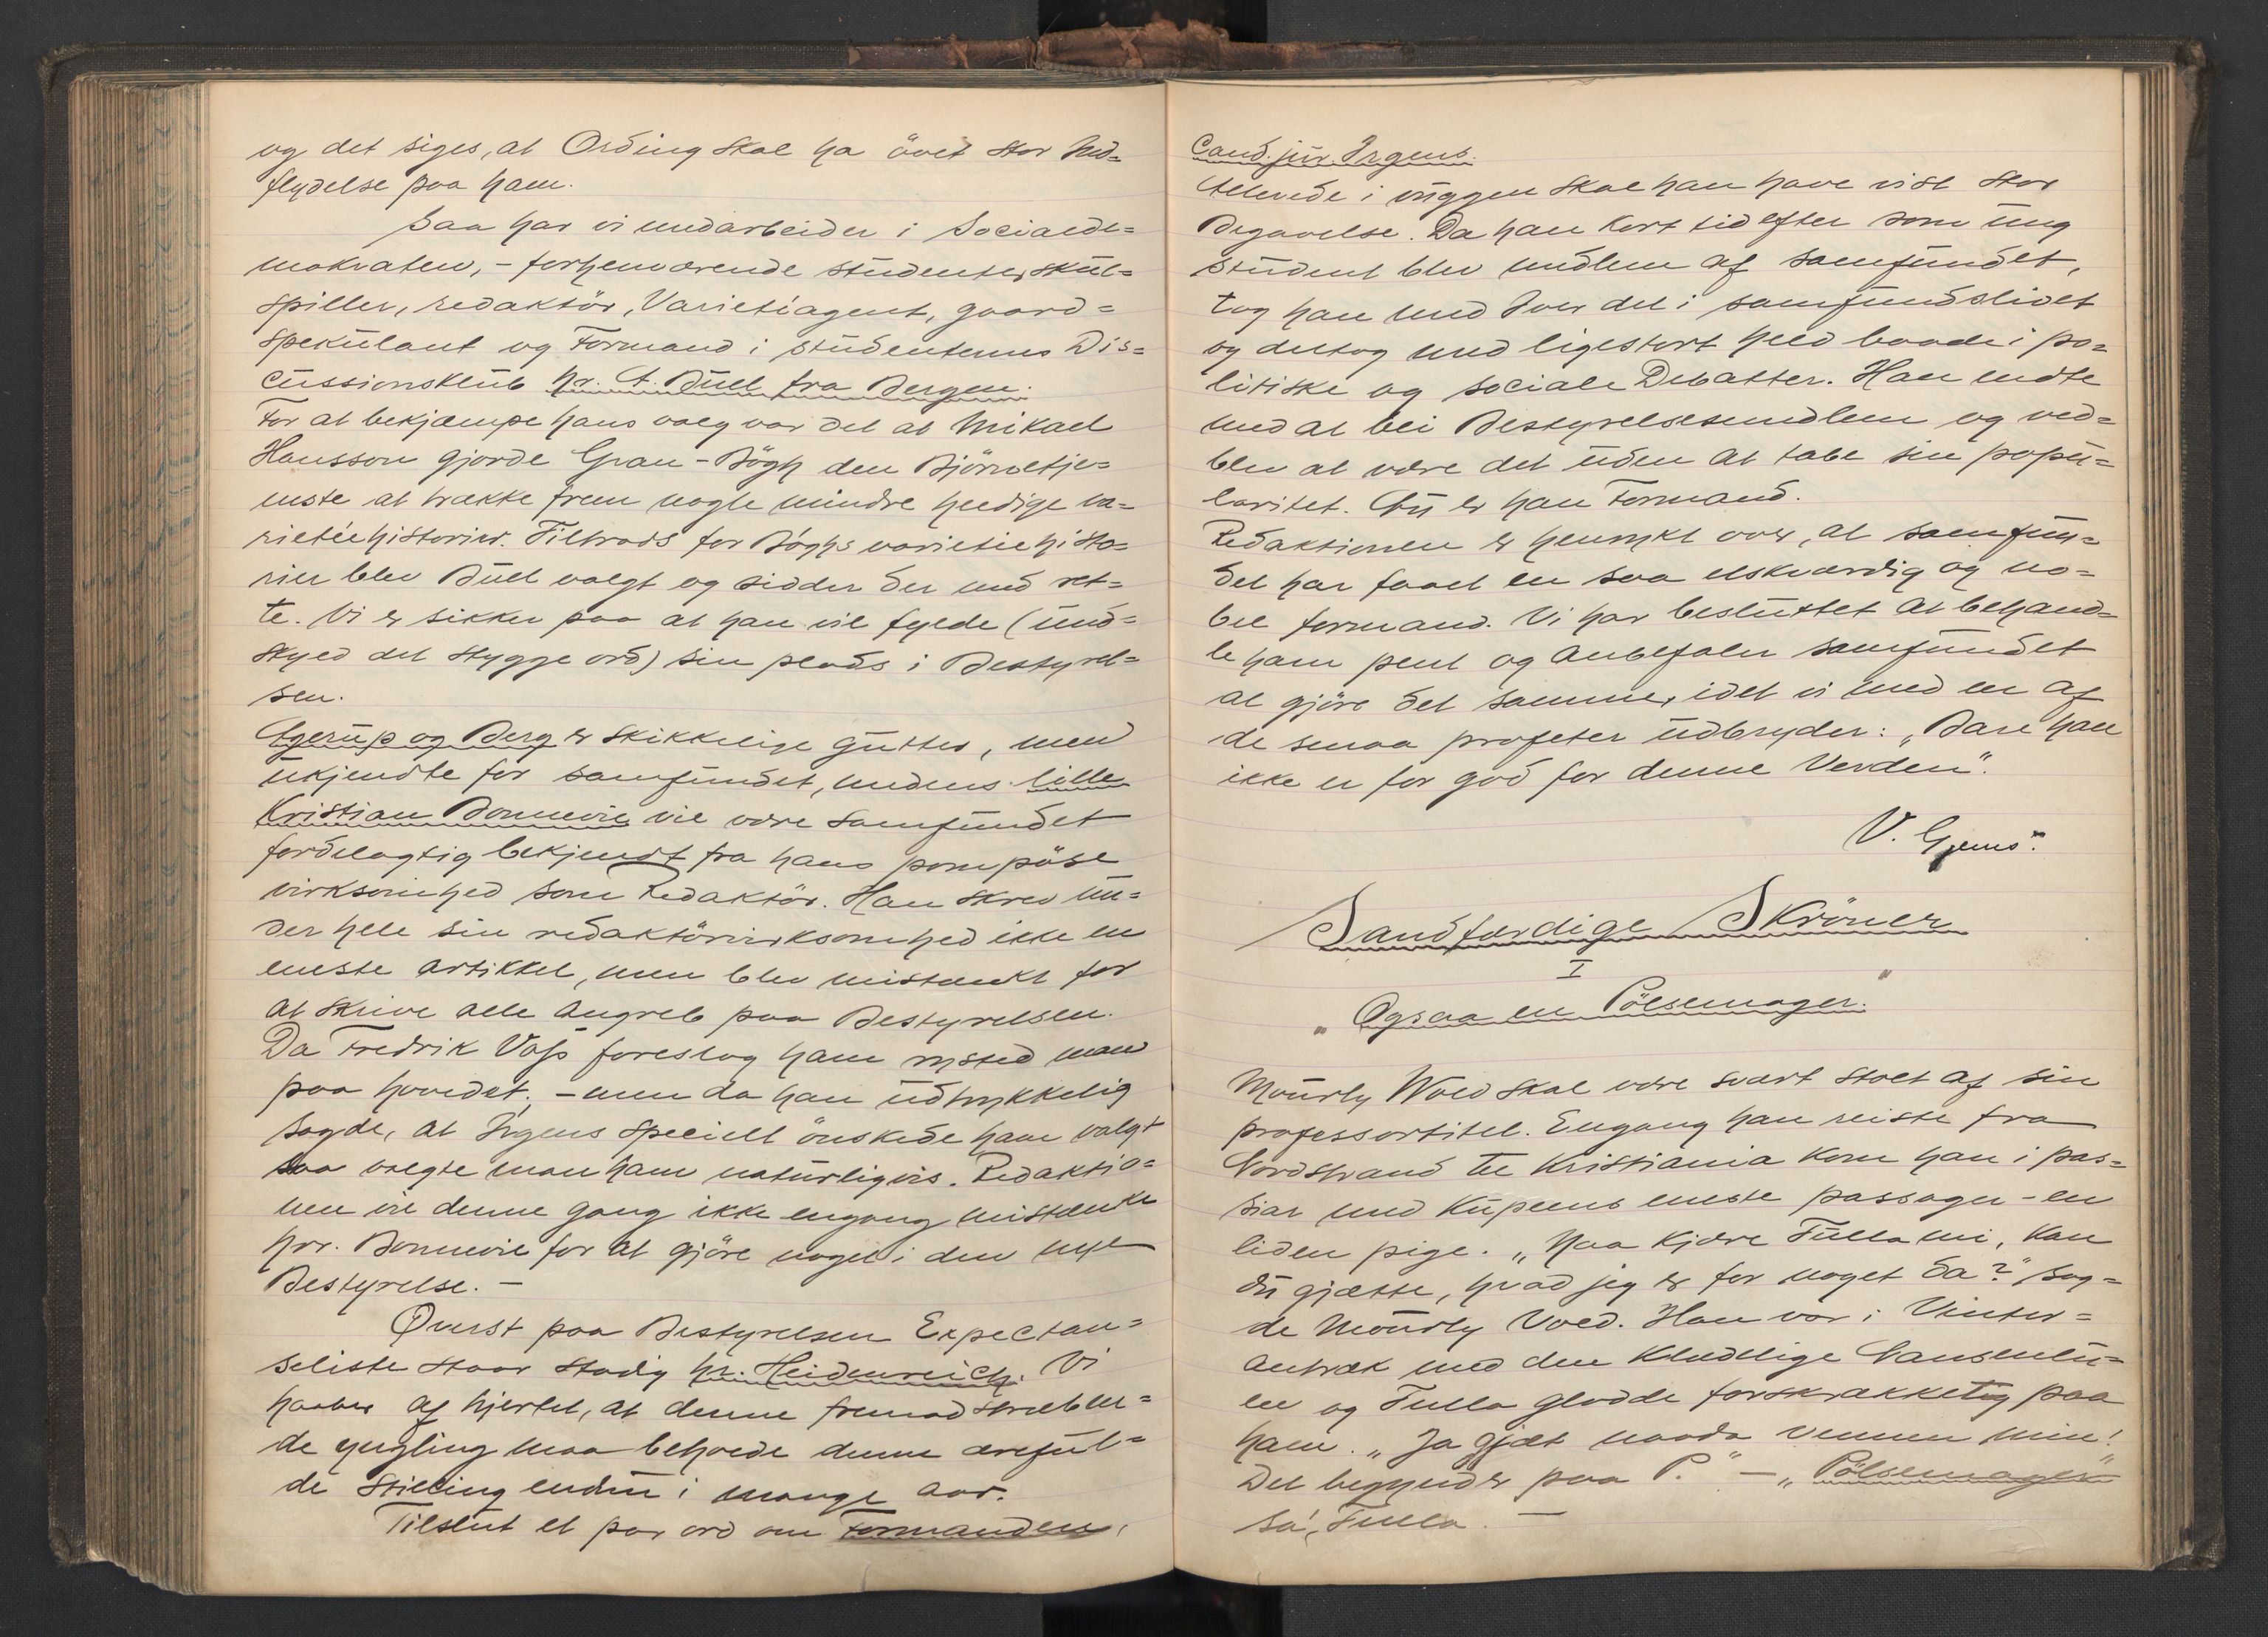 og det siges, at Ording skal ha övet stor Ind=
flydelse paa ham.
Saa har vi medarbeider i Socialde=
mokraten, - forhenværende studenter, skue=
spiller, redaktör, Varietéagent, gaard=
spekulant og Formand i studenternes Dis=
cussionsklub hr. A. Buell fra Bergen.
For at bekjæmpe hans valg var det at Mikael
Hansson gjorde Gran-Bögh den Björnetje=
neste at trække frem nogle mindre heldige va=
rietéehistorier. Tiltrods for Böghs varietéehisto=
rier blev Buell valgt og sidder der med ret=
te. Vi er sikker paa at han vil fylde (und=
skyld det stygge ord) sin plads i Bestyrel=
sen.
Agerup og Berg er skikkelige gutter, men
ukjendte for samfundet, medens lille
Kristian Bonnevie vil være samfundet
fordelagtig bekjendt fra hans pompöse
virksomhed som Redaktör. Han skrev un=
der hele sin redaktörvirksomhed ikke en
eneste artikkel, men blev mistænkt for
at skrive alle angreb paa Bestyrelsen.
Da Fredrik Vass foreslog ham rysted man
paa hovedet, - men da han udtrykkelig
sagde, at Irgens specielt önskede ham valgt
saa valgte man ham naturligvis. Redaktio=
nen vil denne gang ikke engang mistænke
hrr. Bonnevie for at gjöre noget i den nye
Bestyrelse. -
Øverst paa Bestyrelsen Expectan=
seliste staar stadig hr. Heidenreich. Vi
haaber af hjertet, at denne fremadstræben=
de yngling maa beholde denne æreful=
de Stilling endnu i mange aar.
Tilslut et par ord om Formanden,
Cand. jur. Irgens.
Allerede i vuggen skal han have vist stor
Begavelse. Da han kort tid efter som ung
student blev medlem af samfundet,
tog han med Iver del i samfundslivet
og deltog med ligestort held baade i po=
litiske og sociale Debatter. Han endte
med at bli Bestyrelsesmedlem og ved=
blev at være det uden at tabe sin popu=
laritet. Nu er han Formand.
Redaktionen er henrykt over, at samfun=
det har faaet en saa elskværdig og no=
bel formand. Vi har besluttet at behand=
le ham pent og anbefaler samfundet
at gjöre det samme, idet vi med en af
de smaa profeter udbryder: "Bare han
ikke er for god for denne Verden".
V. Gjems".
Sandfærdige Skröner
I
"Ogsaa en Pölsemager."
Mourly Wold skal være svært stolt af sin
professortitel. Engang han reiste fra
Nordstrand til Kristiania kom han i pas=
siar med Kupeens eneste passager - en
liden pige. "Naa kjære Tulla mi, kan
du gjætte, hvad jeg er for noget da?" sag=
de Mourly Vold. Han var i Vinter=
antræk med den kledelige Nansenlu=
en og Tulla glodde forskrækket paa
ham. "Ja gjæt naada vennen min!
Det begynder paa P." - "Pölsemager"
sa', Tulla. -